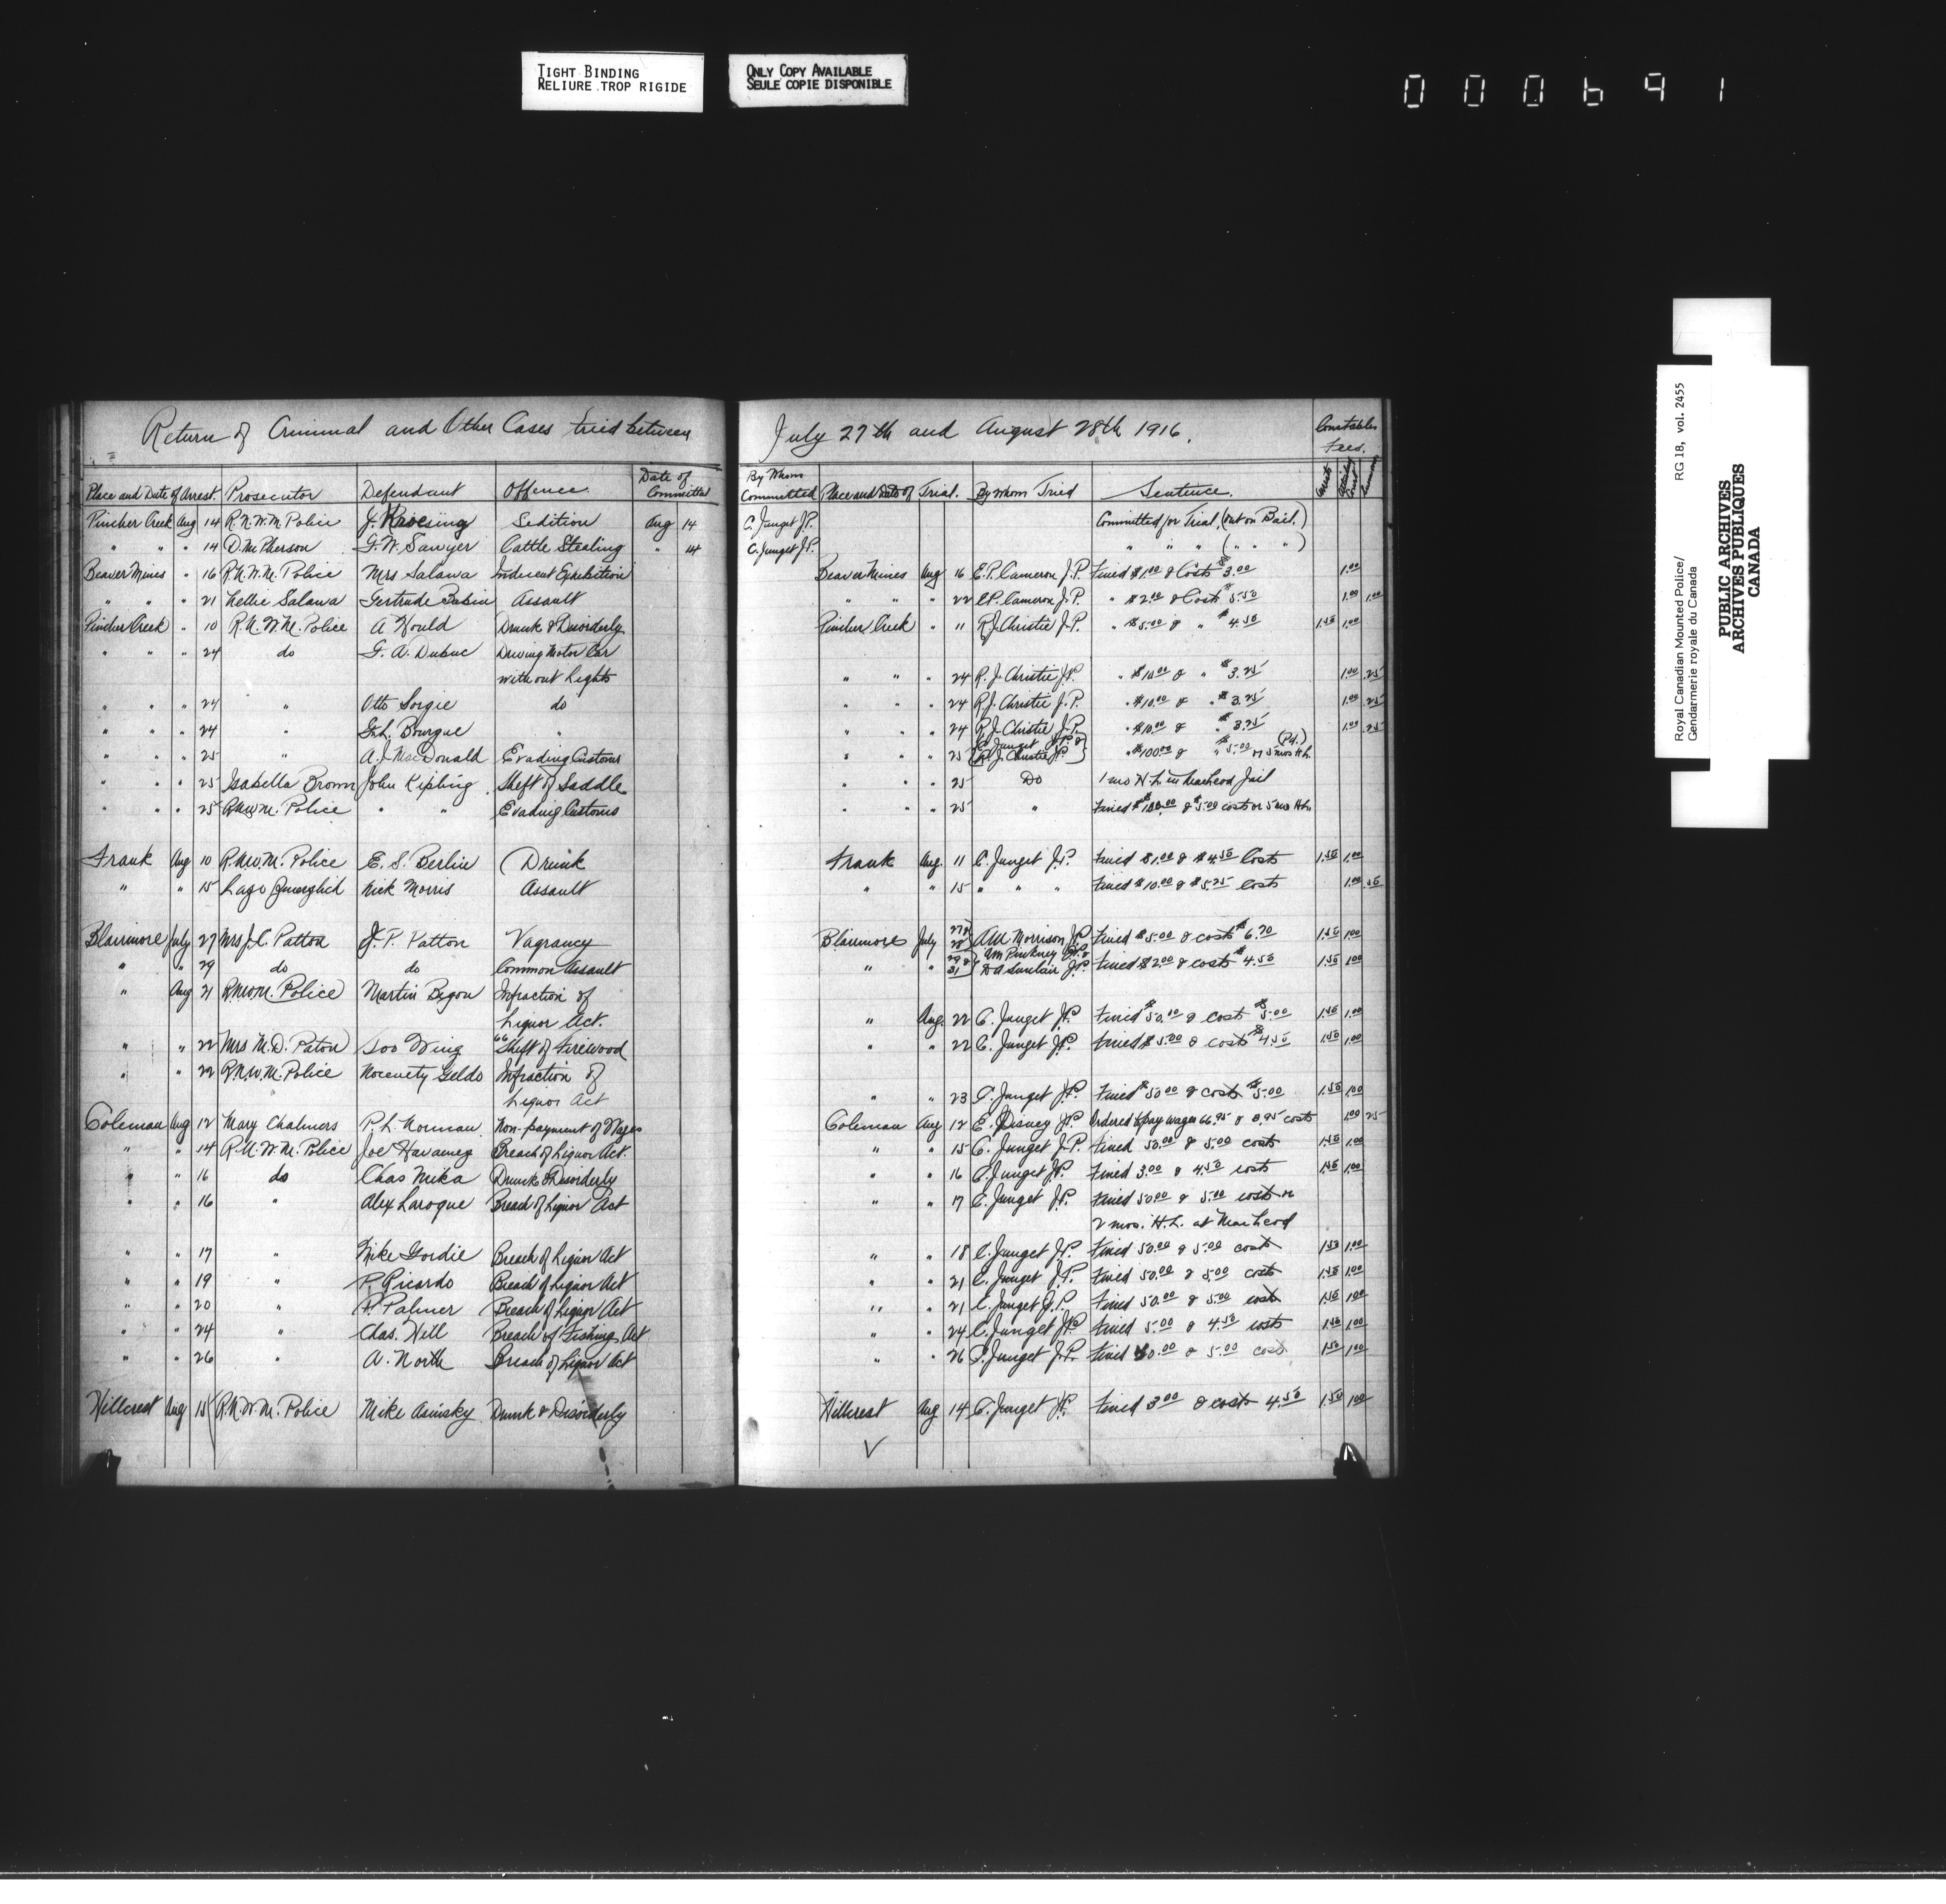 TIGHT BINDING
RELIURE TROP RIGIDE
ONLY COPY AVAILABLE
SEULE COPIE DISPONIBLE
000691
Royal Canadian Mounted Police/ RG 18, vol. 2455
Gendarmerie royale du Canada
PUBLIC ARCHIVES
ARCHIVES PUBLIQUES
CANADA
Return of Criminal and Other Cases tried between July 27th and August 28th 1916. Constables Fees.
Place and Date of Arrest. Prosecutor Defendant Offence Date of Committal By Whom Committed Place and Date of Trial. By whom Tried Sentence.
Pincher Creek Aug 14 R.N.W.M. Police J. Kroesing Sedition Aug 14 C. Junget J.P. Committed for Trial, (out on Bail.)
" " " 14 D. McPherson G.W. Sawyer Cattle Stealing " 14 C. Junget J.P. " " " (" " ")
Beaver Mines " 16 R.N.W.M. Police Mrs Salawa Indecent Exhibition Beaver Mines Aug 16 E.P. Cameron J.P. Fined $1.00 & Costs $3.00 1.00
" " " 21 Nellie Salawa Gertrude Babin Assault " " " 22 E.P. Cameron J.P. " $2.00 & Costs $5.50 1.00 1.00
Pincher Creek " 10 R.N.W.M. Police A Would Drunk & Disorderly Pincher Creek " 11 R.J. Christie J.P. " $5.00 & " $4.50 1.50 1.00
" " " 24 do G. A. Dubuc Driving Motor Car
without Lights " " " 24 R. J. Christie J.P. " $10.00 & " $3.25 1.00 .25
" " " 24 " Otto Sorgie do " " " 24 R.J. Christie J.P. " $10.00 & " $3.25 1.00 .25
" " " 24 " G.L. Bourgue " " " " 24 R.J. Christie J.P. " $10.00 & " $3.25 1.00 .25
" " " 25 " A.J. MacDonald Evading Customs " " " 25 { C. Junget J.P. & R. J. Christie J.P. } " $100.00 & " $5.00 or 5 mos H.L. (Pd.)
" " " 25 Isabella Brown John Kipling Theft of Saddle " " " 25 Do 1 mo H.L. in Macleod Jail
" " " 25 R.N.W.M. Police " " Evading Customs " " " 25 " Fined $100.00 & $5.00 costs or 5 mo H.L.
Frank Aug 10 R.N.W.M. Police E. S. Berlin Drunk Frank Aug. 11 C. Junget J.P. Fined $1.00 & $4.50 Costs 1.50 1.00
" " 15 Nick Morris Assault " " 15 " " " Fined $10.00 & $5.25 costs 1.00
Blairmore July 27 Mrs J.C. Patton J. P. Patton Vagrancy Blairmore July 27 & 28 A.M. Morrison J.P. Fined $5.00 & costs $6.70 1.50 1.00
" " 29 do do Common Assault " " 29 & 31 Wm Pinkney J.P. & D A Sinclair J.P. Fined $2.00 & costs $4.50 1.50 1.00
" Aug 21 R.N.W.M. Police Martin Bigou Infraction of
Liquor Act. " Aug. 22 C. Junget J.P. Fined $50.00 & costs $5.00 1.50 1.00
" " 22 Mrs M.D. Paton Soo Wing Theft of Firewood " " 22 C. Junget J.P. Fined $5.00 & costs $4.50 1.50 1.00
" " 22 R.N.W.M. Police Nocenety Geldo Infraction of
Liquor Act " " 23 C. Junget J.P. Fined $50.00 & costs $5.00 1.50 1.00
Coleman Aug 12 Mary Chalmers P. L. Norman Non-payment of Wages Coleman Aug 12 E. Disney J.P. Ordered to pay wages 66.95 & 8.95 costs 1.00 25
" " 14 R.N.W.M. Police Joe Havaney Breach of Liquor Act. " " 15 C. Junget J.P. Fined 50.00 & 5.00 costs 1.50 1.00
" " 16 do Chas Mika Drunk & Disorderly " " 16 C. Junget J.P. Fined 3.00 & 4.50 costs 1.50 1.00
" " 16 " Alex Laroque Breach of Liquor Act " " 17 C. Junget J.P. Fined 50.00 & 5.00 costs or
2 mos. H.L. at Macleod
" " 17 " Mike Gordie Breach of Liquor Act " " 18 C. Junget J.P. Fined 50.00 & 5.00 costs 1.50 1.00
" " 19 " P. Ricardo Breach of Liquor Act " " 21 C. Junget J.P. Fined 50.00 & 5.00 costs 1.50 1.00
" " 20 " P. Palmer Breach of Liquor Act " " 21 C. Junget J.P. Fined 50.00 & 5.00 costs 1.50 1.00
" " 24 " Chas. Hill Breach of Fishing Act " " 24 C. Junget J.P. Fined 5.00 & 4.50 costs 1.50 1.00
" " 26 " A. North Breach of Liquor Act " " 26 C. Junget J.P. Fined & 5.00 costs 1.50 1.00
Hillcrest Aug R.N.W.M. Police Mike Asinsky Drunk & Disorderly Hillcrest Aug 14 C. Junget J.P. Fined 3.00 & costs 4.50 1.50 1.00